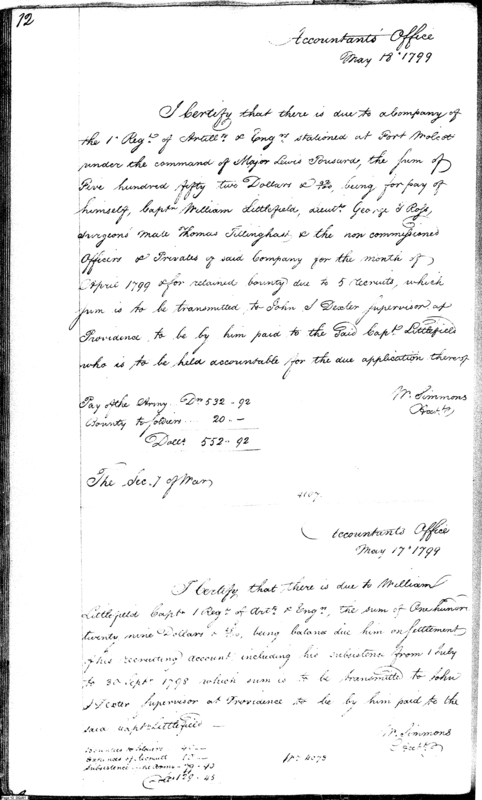 12
Accountants Office
May 18th 1799
I Certify that there is due to a Company of
the 1st Regt. of Artills. & Engrs. stationed at Fort Wolcott
under the command of Major Lewis Tousard, the sum of
Five hundred fifty two Dollars & 92/100, being for pay of
himself, Captn. William Littlefield, Lieutn. George G Ross,
Surgeons Mate Thomas Tillinghast & the non commissioned
Officers & Privates of said Company for the month of
April 1799 & for retained bounty due to 5 recruits, which
sum is to be transmitted to John S Dexter Supervisor at
Providence to be by him paid to the said Capt. Littlefield
who is to be held accountable for the due application thereof
Pay of the Army Drs 532 - 92
Bounty to soldiers 20 -
Dolls. 552 - 92
W. Simmons
Acct.
The Secy of War
4107
Accountants Office
May 17th 1799
I Certify that there is due to William
Littlefield Captn 1 Regt. of Arts. & Engrs., the sum of One hundr
twenty nine Dollars & being balance due him on settlement
of his recruiting account including his subsistence from 1 July
to 30 Septr 1798 which sum is to be transmitted to John
S Dexter Supervisor at Providence to be by him paid to the
said Captn Littlefield
W. Simmons
Acct.
Bounties
Subsistence
No 4073